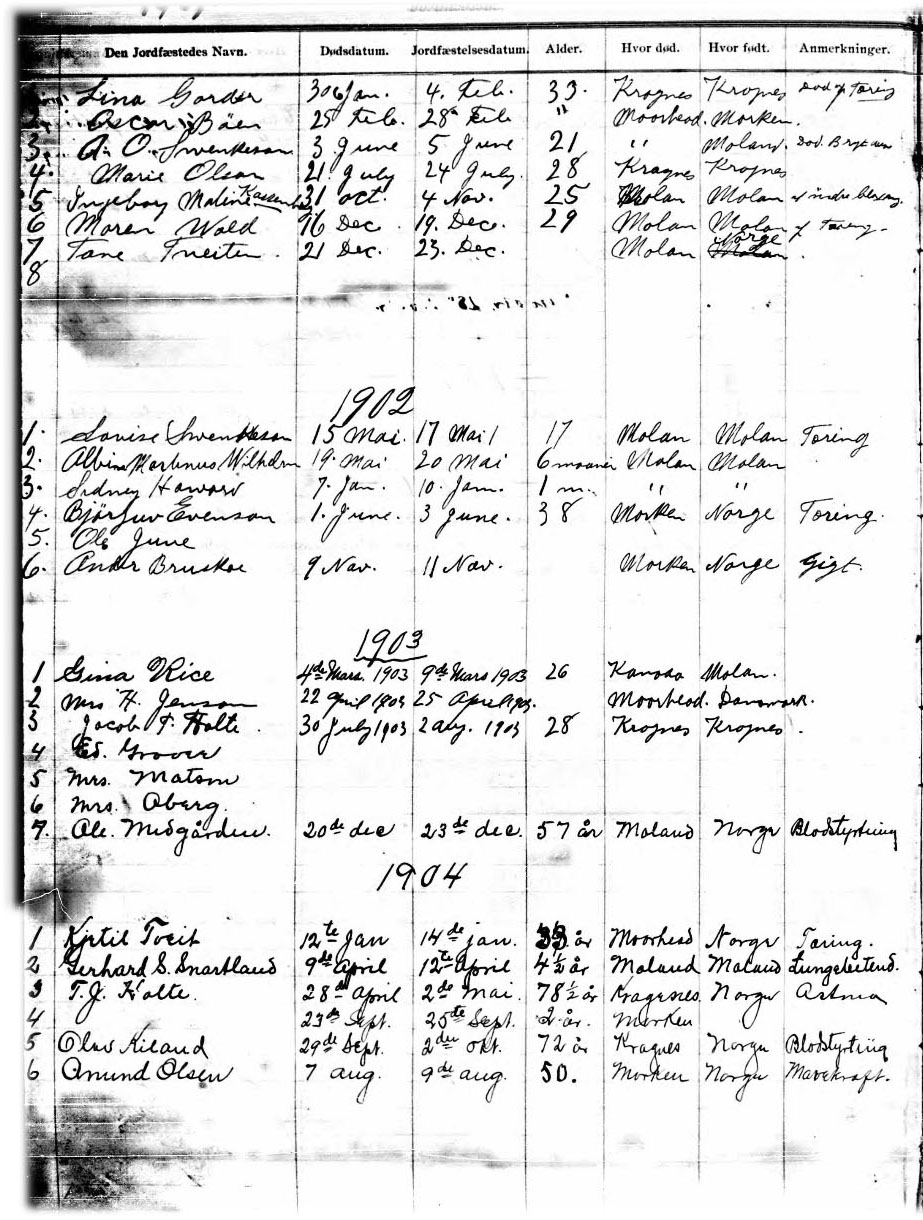 Den Jordfæstedes Navn. Dødsdatum. Jordfæstelsesdatum. Alder. Hvor død. Hvor født. Anmerkninger.
Lina Gorder 30 Jan. 4. Feb. 33. Kragnes Kragnes Død af Tæring
2. Oscar Bøen 25 Feb. 28 Feb " Moorhead. Morken.
3. A. O. Swenkeson 3 June 5 June 21 " Moland. Død.
4. Marie Olson 21. July 24 July. 28 Kragnes Kragnes
5 Ingeborg Maline 31 Oct. 4 Nov. 25 Molan Molan
6 Maren Wald 16 Dec. 19. Dec. 29 Molan Molan af Tæring
7 Tone Tveiten. 21 Dec. 23. Dec. Molan Norge
8
1902
1. Lovise Swenkeson 15 Mai. 17 Mai 17 Molan Molan Tæring
2. Martinus Wilhelm 19. Mai 20 Mai 6 maaner Molan Molan
3. Sidney Howard 7. Jan. 10. Jan. 1 m. " "
4. Bjørguv Evenson 1. June. 3 June. 38 Morken Norge Tæring.
5. Ole June
6. Ander Bruskoe 9 Nov. 11 Nov. Morken Norge Gigt.
1903
1 Gina Rice 4de Mars 1903 9de Mars 1903 26 Kanada Molan.
2 Mrs H. Jenson 22 April 1903 25 April 1903. Moorhead. Danmark.
3 Jacob T. Holte. 30 July 1903 2 Aug. 1903 28 Kragnes Kragnes.
4 Ed. Grover
5 Mrs. Matson
6 Mrs. Aberg.
7. Ole Midgården. 20de dec 23de dec. 57 år Moland Norge Blodstyrtning
1904
1 Kjetil Tveit 12te Jan 14de jan. år Moorhead Norge Tæring.
2 Gerhard S. Snartland 9de April 12te April 4½ år Moland Moland
3 T. J. Holte. 28de April 2de Mai. 78½ år Kragnes Norge Astma
4 23de Sept. 25te Sept. 2 år. Morken
5 Olav Kiland 29de Sept. 2den okt. 72 år Kragnes Norge Blodstyrting
6 Amund Olsen 7 aug. 9de aug. 50. Morken Norge Mavekræft.